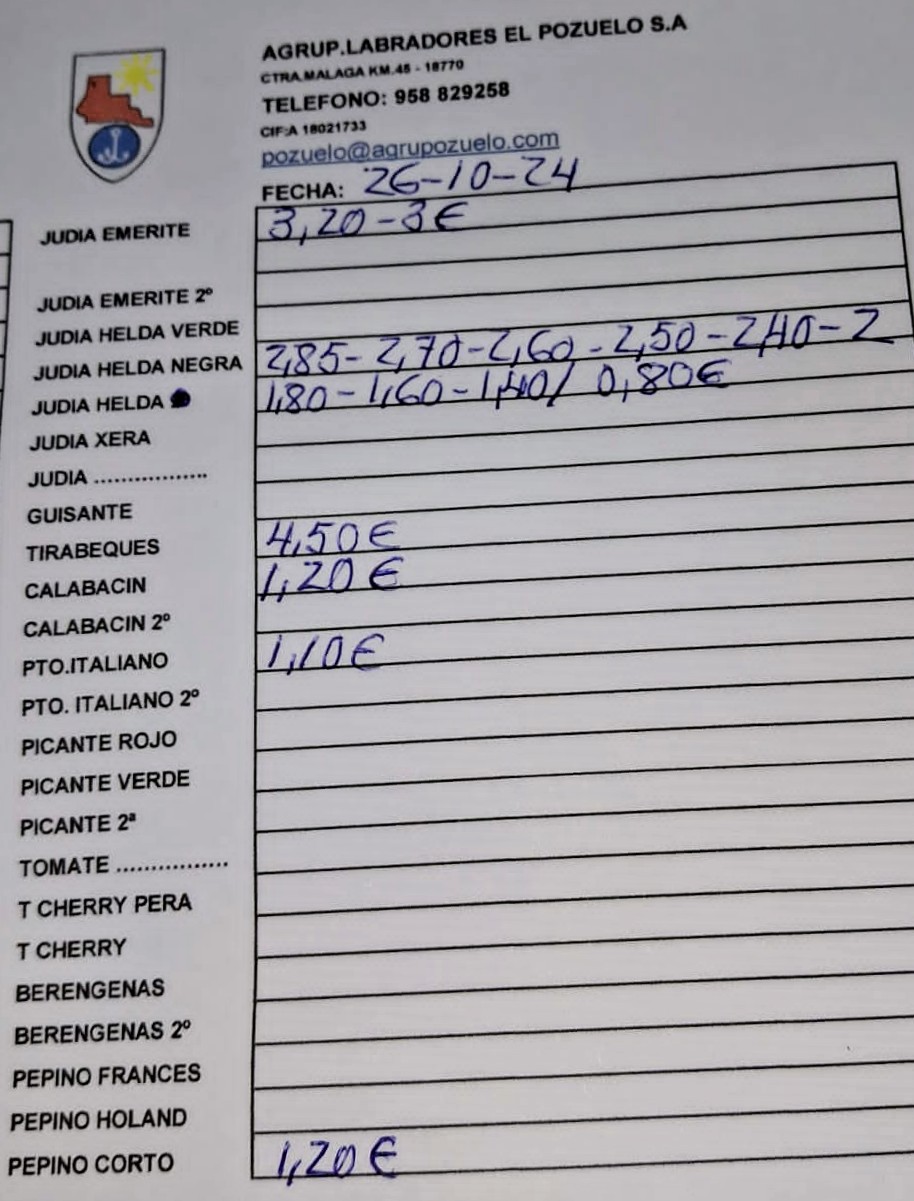 AGRUP.LABRADORES EL POZUELO S.A
CTRA.MALAGA KM.45 - 18770
TELEFONO: 958 829258
CIF:A 18021733
pozuelo@agrupozuelo.com
FECHA: 26-10-24
JUDIA EMERITE 3,20-3€
JUDIA EMERITE 2º
JUDIA HELDA VERDE
JUDIA HELDA NEGRA 2,85-2,70-2,60-2,50-2,40-2
JUDIA HELDA 1,80-1,60-1,40/ 0,80€
JUDIA XERA
JUDIA .................
GUISANTE
TIRABEQUES 4,50€
CALABACIN 1,20€
CALABACIN 2º
PTO.ITALIANO 1,10€
PTO. ITALIANO 2º
PICANTE ROJO
PICANTE VERDE
PICANTE 2ª
TOMATE ................
T CHERRY PERA
T CHERRY
BERENGENAS
BERENGENAS 2º
PEPINO FRANCES
PEPINO HOLAND
PEPINO CORTO 1,20€